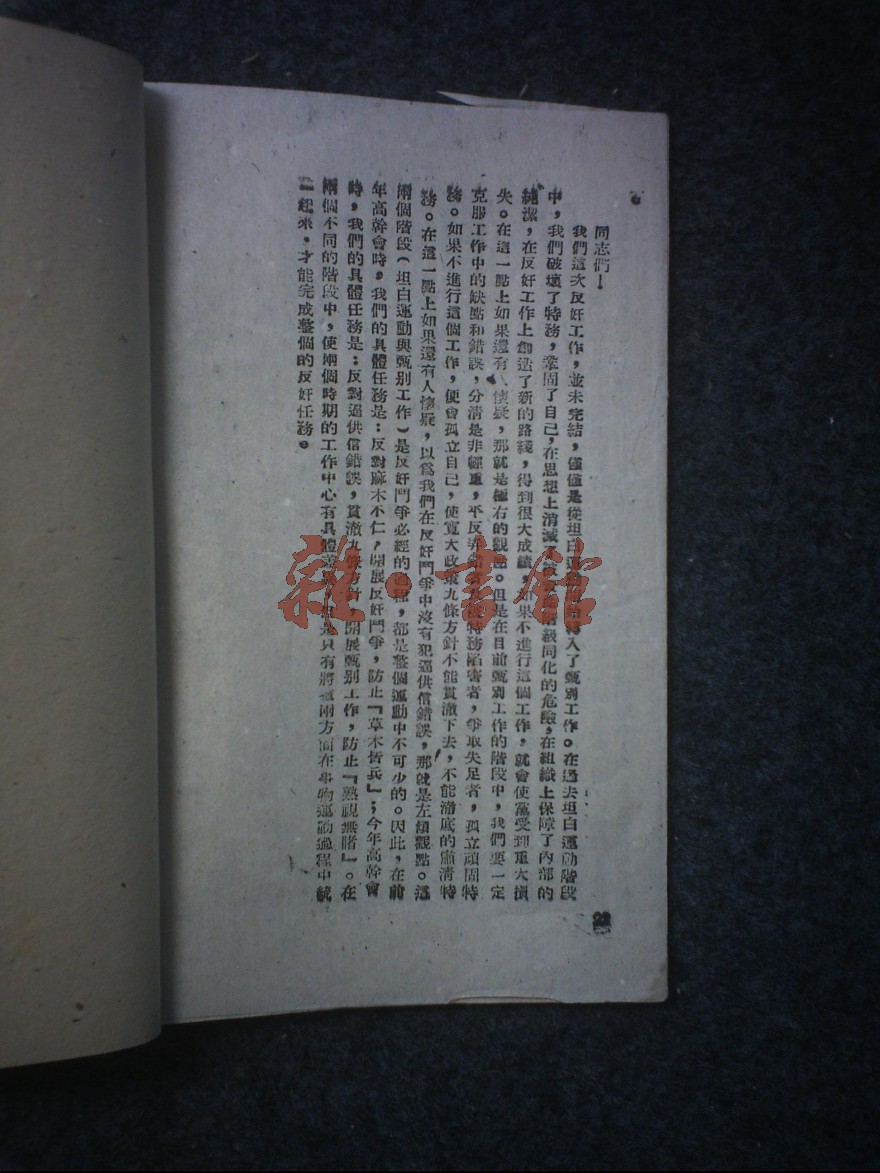 同志們！
我們這次反奸工作，並未完結，僅僅是從坦白運動轉入了甄別工作。在過去坦白運動階段
中，我們破壞了特務，鞏固了自己，在思想上消滅了階級同化的危險，在組織上保障了內部的
純潔，在反奸工作上創造了新的路綫，得到很大成績，如果不進行這個工作，就會使黨受到重大損
失。在這一點上如果還有人懷疑，那就是極右的觀點。但是在目前甄別工作的階段中，我們要一定
克服工作中的缺點和錯誤，分清是非輕重，平反弄錯特務陷害者，爭取失足者，孤立頑固特
務。如果不進行這個工作，便會孤立自己，使寬大政策九條方針不能貫澈下去，不能澈底的肅清特
務。在這一點上如果還有人懷疑，以爲我們在反奸鬥爭中沒有犯逼供信錯誤，那就是左傾觀點。這
兩個階段（坦白運動與甄別工作）是反奸鬥爭必經的過程，都是整個運動中不可少的。因此，在前
年高幹會時，我們的具體任務是：反對麻木不仁，開展反奸鬥爭，防止『草木皆兵』；今年高幹會
時，我們的具體任務是：反對逼供信錯誤，貫澈九條方針，開展甄別工作，防止『熟視無睹』。在
兩個不同的階段中，使兩個時期的工作中心有具體差別，但是只有將這兩方面在事物運動過程中統
一起來，才能完成整個的反奸任務。
23
雜·書館